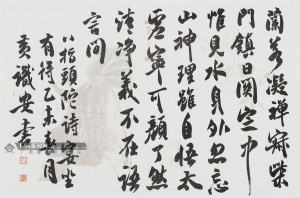 蘭若凝禪寂柴
門鎮日關空中
惟見水身外忽忘
山神理雖自悟太
虛寧可顏了然
清净義不在語
言間
八指頭陀詩宴坐
有得乙未春月
黃識安書